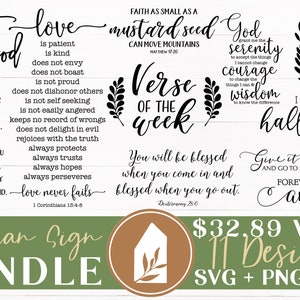 love
is patient
is kind
does not envy
does not boast
is not proud
does not dishonor others
is not self seeking
is not easily angered
keeps no record of wrongs
does not delight in evil
rejoices with the truth
always protects
always trusts
always hopes
always perseveres
love never fails
1 Corinthians 13:4-8
FAITH AS SMALL AS A
mustard seed
CAN MOVE MOUNTAINS
MATTHEW 17:20
Verse
OF THE
week
You will be blessed
when you come in and
blessed when you go out.
Deuteronomy 28:6
God
grant me the
serenity
to accept the things
I cannot change
courage
to change the
things I can &
wisdom
to know the difference
hall
Give it
AND GO TO
FORE
Sign
NDLE
$32.89
11 Desi
SVG + PNG